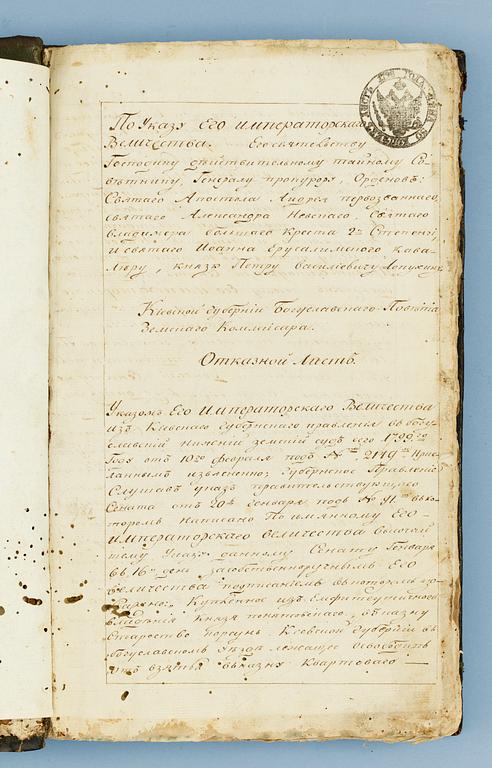 По Указу Его императорскаго
Величества. Его святельству
Господину действительному тайному Со-
ветнику, Генералу прокурору, Орденовъ:
Святаго Апостола Андрея первозваннаго,
святаго Александра Невскаго, Святаго
владимера большаго Креста 2й Степени
и святаго Иоанна Ерусалимскаго Кава-
леру, князю Петру Василиевичу Лопухину
Киевской Губернии Богуславскаго Повета
Земскаго Коммисара.
Отказной Листъ.
Указомъ Его Императорскаго Величества
изъ Киевскаго Губернскаго правления въ богу-
славский нижний земский судъ сего 1799го
Года отъ 10го февраля подъ № 2119мъ прис-
ланнымъ изъяснено: Губернское Правление
Слушавъ указъ правительствующаго
Сената отъ 20го Генваря подъ №
торомъ написано По имянному Его
императорскаго величества высочай-
шему Указу данному Сенату Генваря
въ 16й день засобственноручнымъ Его
величества подписаниемъ въ которомъ из-
ображено: Купленное изъ Емфитеутическаго
владения Князя понятовскаго, въ казну
Староство Корсунь Киевской Губернии въ
богуславскомъ уезде лежащее освободить
отъ взятья въ казну Квартоваго